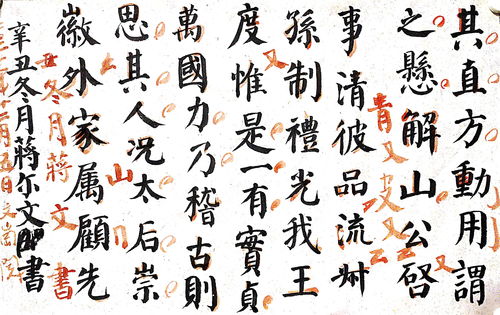 其直方動用謂
之懸解山公啓
事清彼品流艸
孫制禮光我王
度惟是一有實貞
萬國力乃稽古則
思其人况太后崇
徽外家属顧先
辛丑冬月蔣尔文書